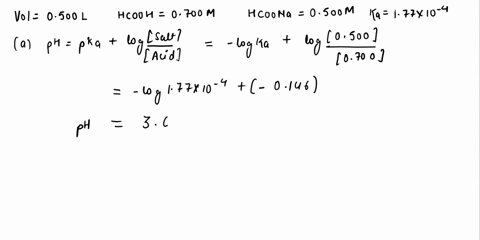 Vol = 0.500 L HCOOH = 0.700 M HCOONa = 0.500 M Ka = 1.77×10⁻⁴
(a) pH = pKa + log [Salt]/[Acid] = -log Ka + log [0.500]/[0.700]
= -log 1.77×10⁻⁴ + (-0.146)
pH = 3.6